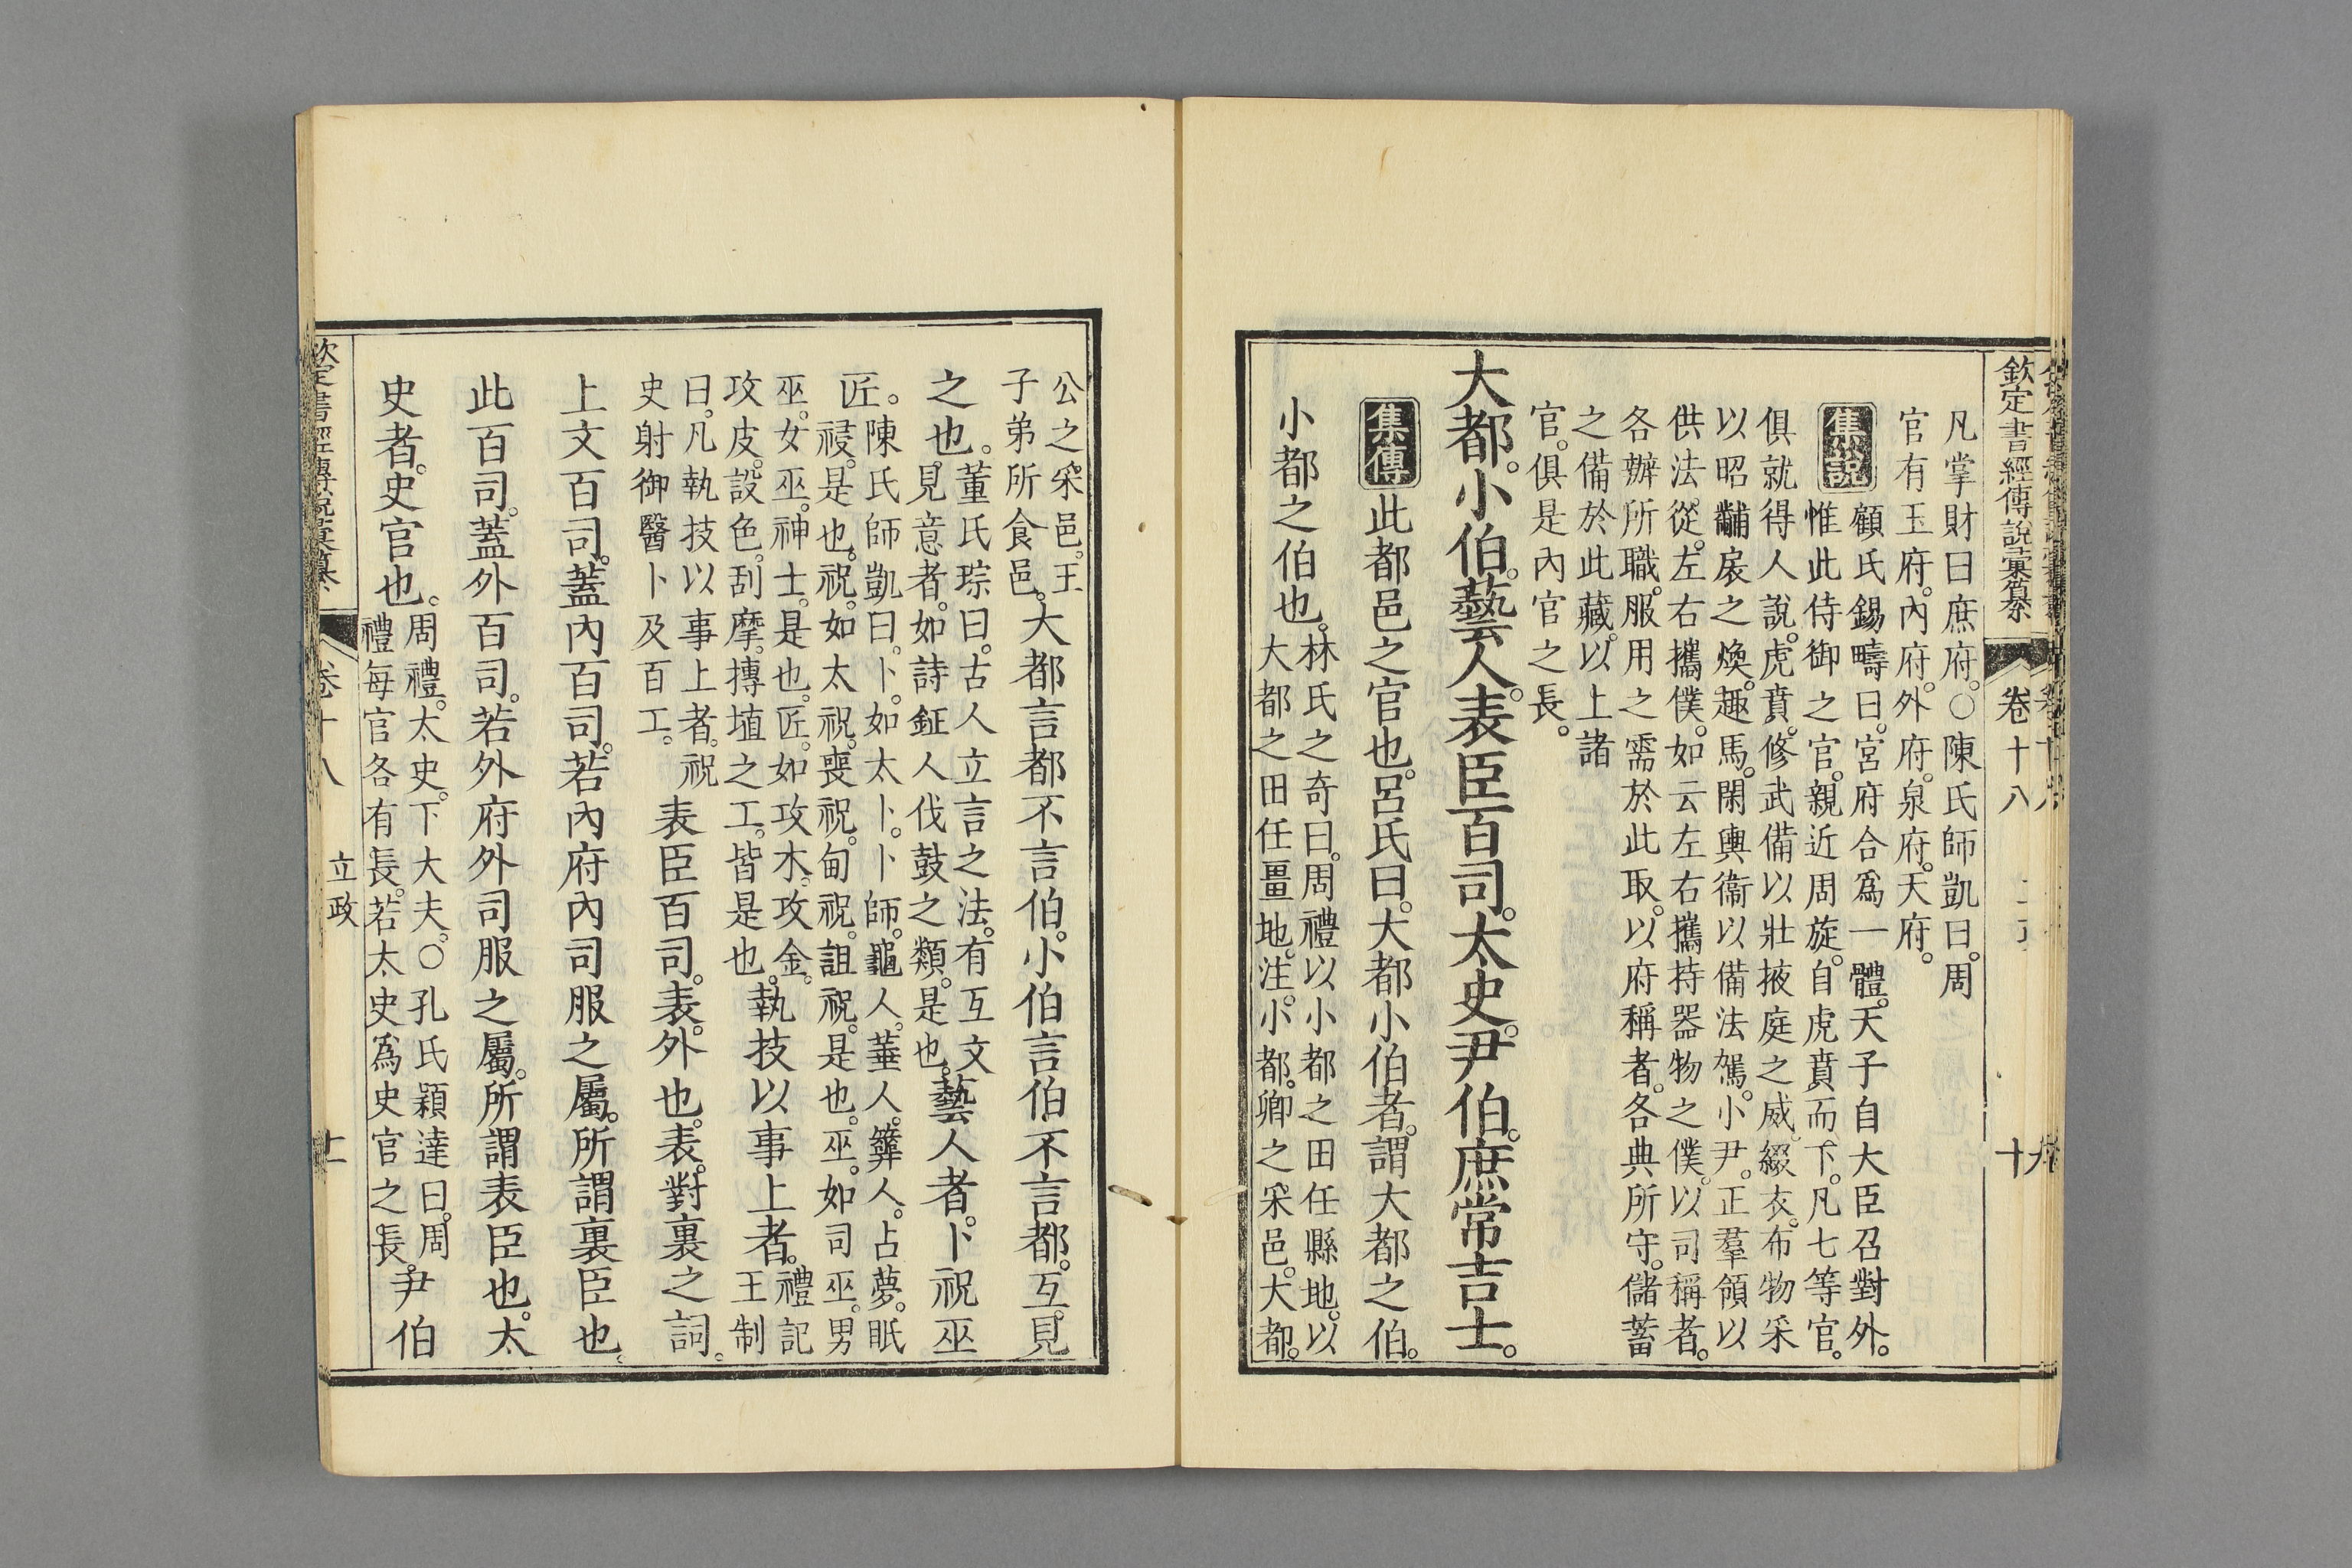 欽定書經傳說彙纂 卷十八
凡掌財曰庶府。○陳氏師凱曰。周
官有玉府。內府。外府。泉府。天府。
集說 顧氏錫疇曰。宮府合爲一體。天子自大臣召對外。
惟此侍御之官。親近周旋。自虎賁而下。凡七等官。
俱就得人說。虎賁。修武備以壯掖庭之威。綴衣。布物采
以昭黼扆之煥。趣馬。閑輿衞以備法駕。小尹。正羣領以
供法從。左右攜僕。如云左右攜持器物之僕。以司稱者。
各辦所職。服用之需於此取。以府稱者。各典所守。儲蓄
之備於此藏。以上諸
官。俱是內官之長。
大都。小伯。藝人。表臣百司。太史。尹伯。庶常吉士。
集傳 此都邑之官也。呂氏曰。大都小伯者。謂大都之伯。
小都之伯也。
林氏之奇曰。周禮以小都之田任縣地。以
大都之田任畺地。注。小都。卿之采邑。大都。
公之采邑。王
子弟所食邑。
大都言都不言伯。小伯言伯不言都。互見
之也。
董氏琮曰。古人立言之法。有互文
見意者。如詩鉦人伐鼓之類。是也。
藝人者。卜祝巫
匠。
陳氏師凱曰。卜。如太卜。卜師。龜人。菙人。簭人。占夢。眡
祲。是也。祝。如太祝。喪祝。甸祝。詛祝。是也。巫。如司巫。男
巫。女巫。神士。是也。匠。如攻木。攻金。
攻皮。設色。刮摩。摶埴之工。皆是也。
執技以事上者。
禮記
王制
曰。凡執技以事上者。祝
史射御醫卜及百工。
表臣百司。表。外也。表。對裏之詞。
上文百司。蓋內百司。若內府內司服之屬。所謂裏臣也。
此百司。蓋外百司。若外府外司服之屬。所謂表臣也。太
史者。史官也。
周禮。太史。下大夫。○孔氏穎達曰。周
禮每官各有長。若太史爲史官之長。
尹伯
欽定書經傳說彙纂 卷十八 立政 十一